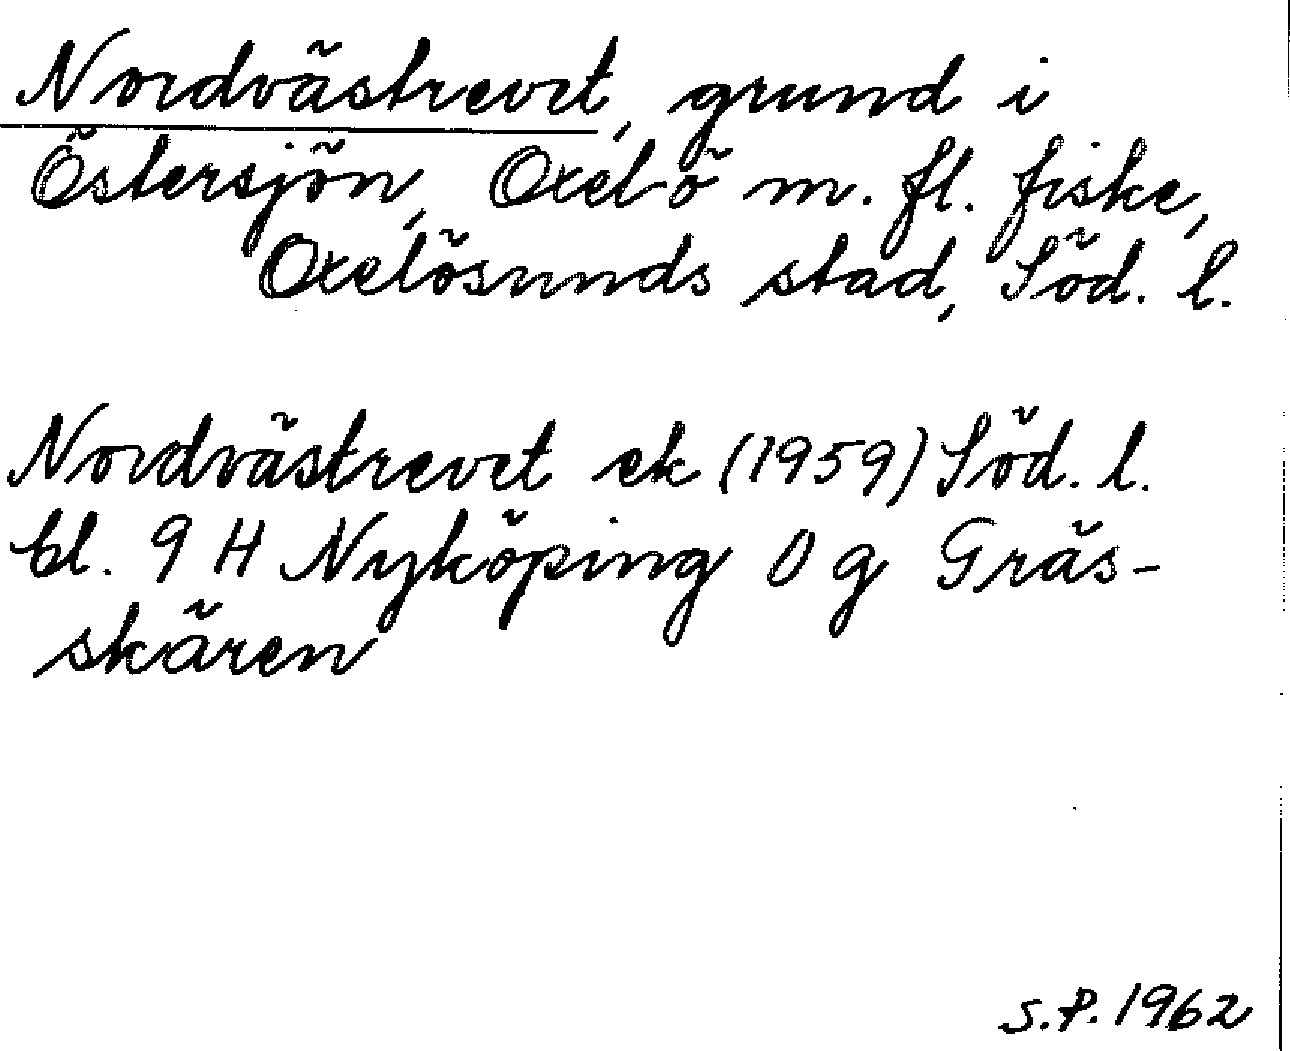 Nordvästrevet, grund i
Östersjön, Oxel-ö m. fl. fiske,
Oxelösunds stad, Söd. l.
Nordvästrevet ek (1959) Söd. l.
bl. 9 H Nyköping 0 g Gräs-
skären
S.P. 1962